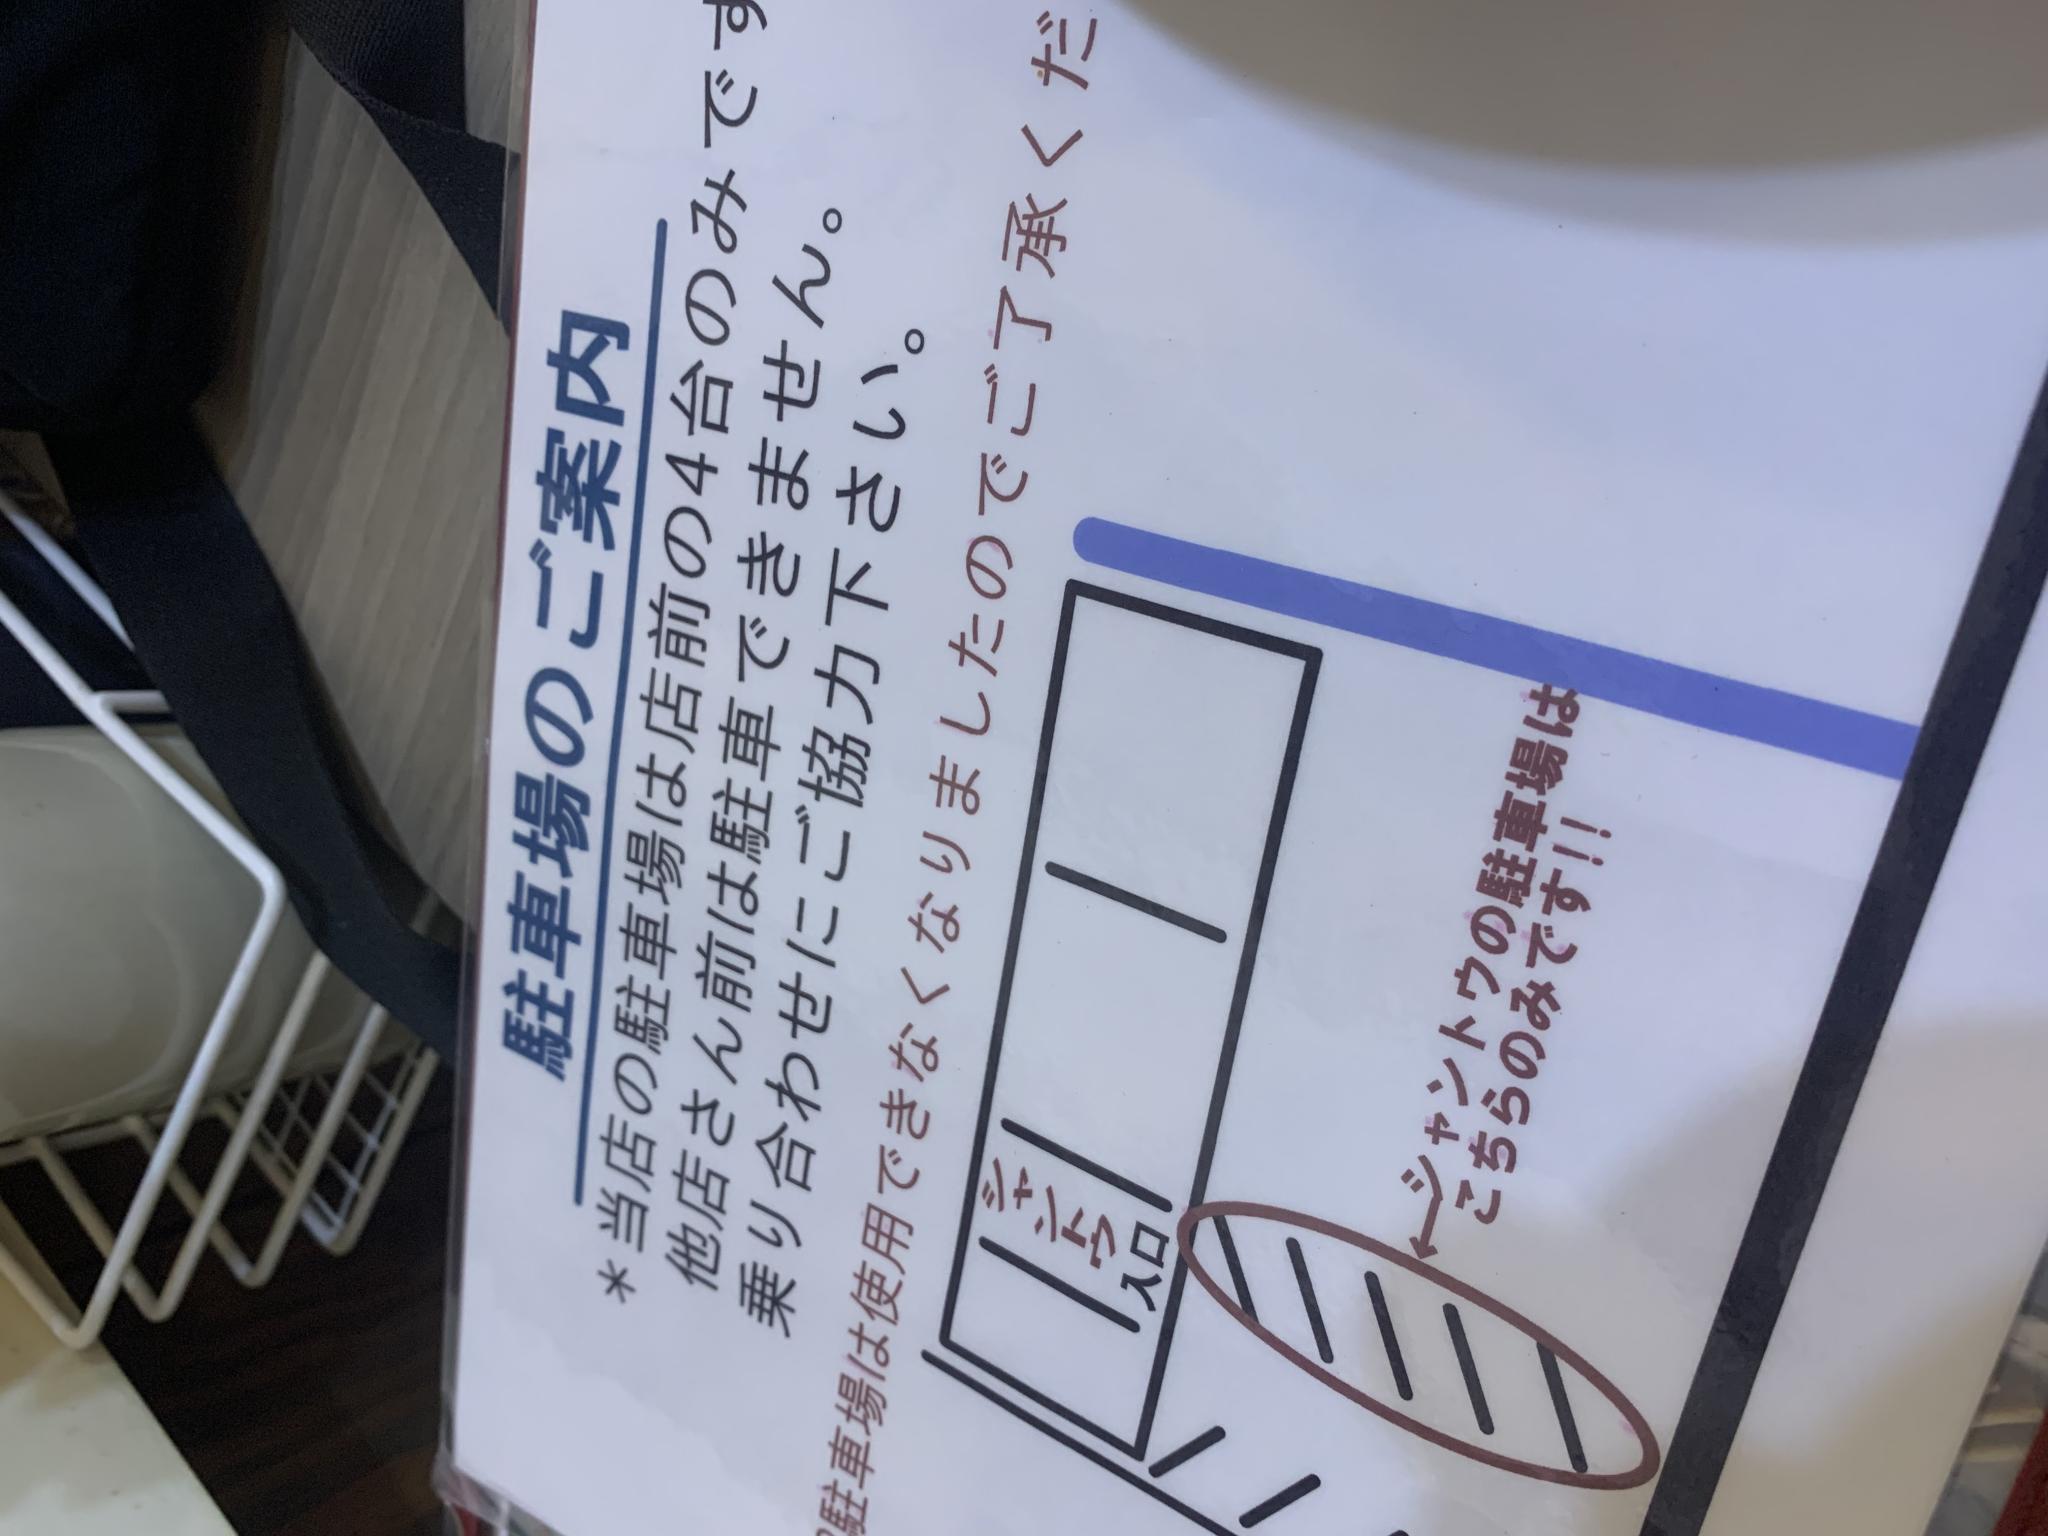 駐車場のご案内
*当店の駐車場は店前の4台のみです
他店さん前は駐車できません。
乗り合わせにご協力下さい。
駐車場は使用できなくなりましたのでご了承くだ
ジャン
トウ
入口
←ジャントウの駐車場は
こちらのみです!!